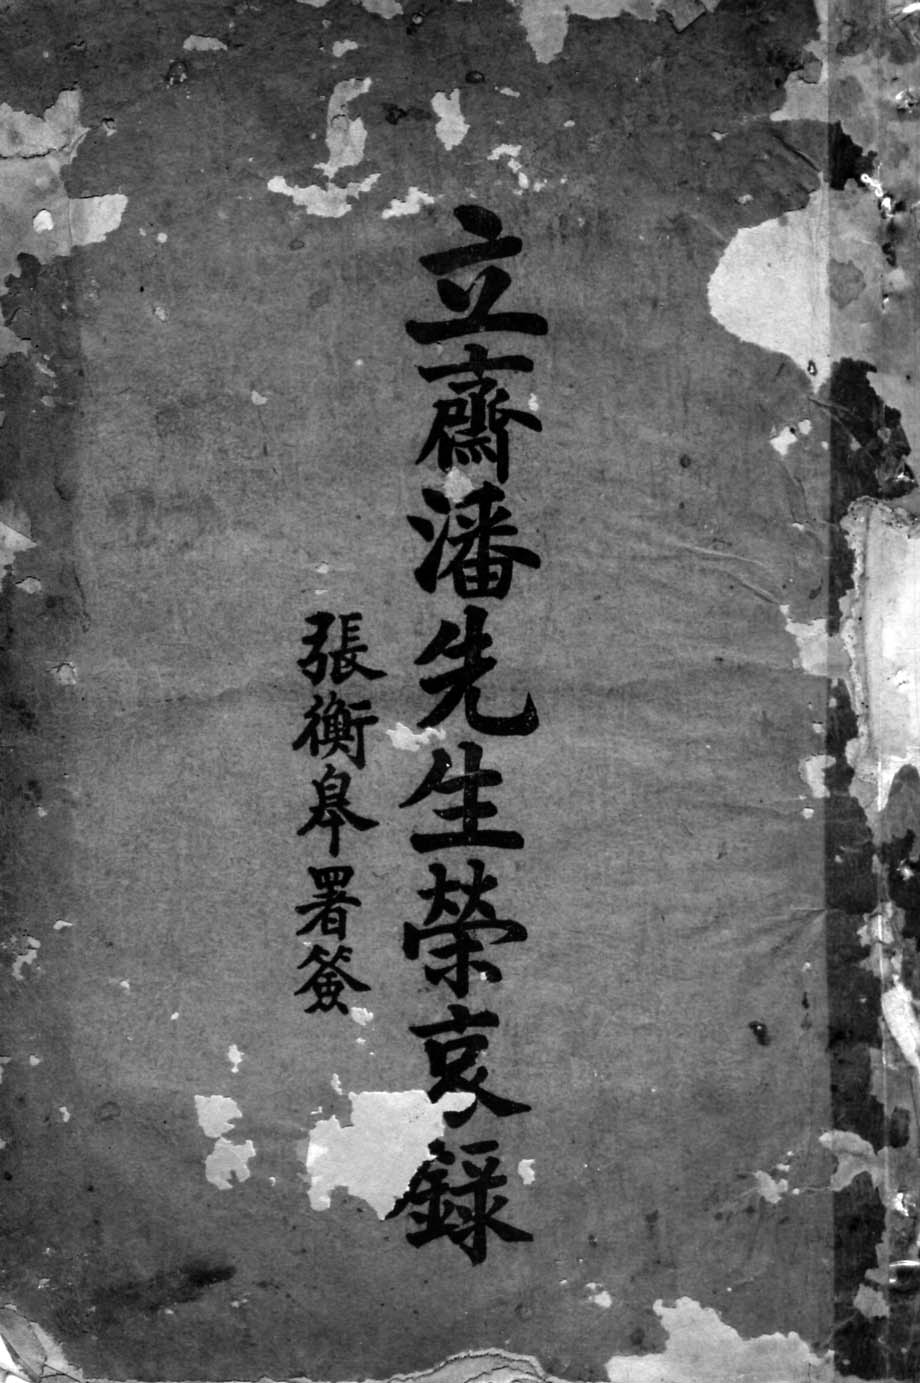 立齋潘先生榮哀錄
張衡皋署簽